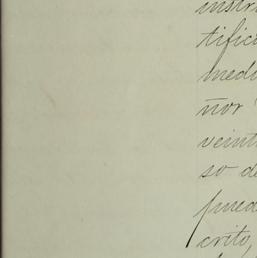 instr
tific
medi
ñor
veint
so de
pued
crito,